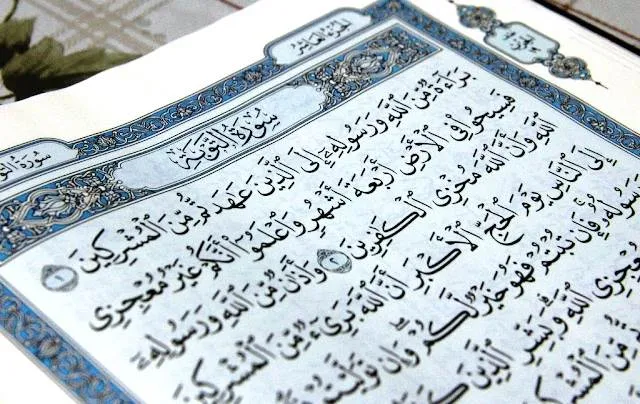 الجزء العاشر
سورة التوبة
بَرَآءَةٌ مِّنَ ٱللَّهِ وَرَسُولِهِۦٓ إِلَى ٱلَّذِينَ عَٰهَدتُّم مِّنَ ٱلْمُشْرِكِينَ ١
فَسِيحُوا۟ فِى ٱلْأَرْضِ أَرْبَعَةَ أَشْهُرٍ وَٱعْلَمُوٓا۟ أَنَّكُمْ غَيْرُ مُعْجِزِى
ٱللَّهِ وَأَنَّ ٱللَّهَ مُخْزِى ٱلْكَٰفِرِينَ ٢ وَأَذَٰنٌ مِّنَ ٱللَّهِ وَرَسُولِهِۦٓ
إِلَى ٱلنَّاسِ يَوْمَ ٱلْحَجِّ ٱلْأَكْبَرِ أَنَّ ٱللَّهَ بَرِىٓءٌ مِّنَ ٱلْمُشْرِكِينَ
وَرَسُولُهُۥ فَإِن تُبْتُمْ فَهُوَ خَيْرٌ لَّكُمْ وَإِن
مُعْجِزِى ٱللَّهِ وَبَشِّرِ ٱلَّذِينَ
مِّنَ